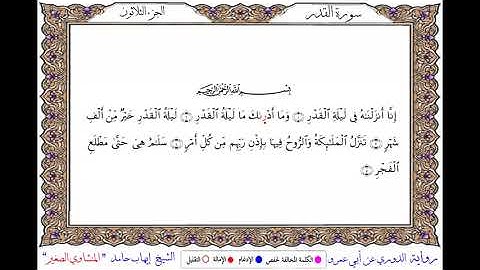 سورة القدر
الجزء الثلاثون
بسم الله الرحمن الرحيم
إِنَّا أَنزَلْنَٰهُ فِى لَيْلَةِ ٱلْقَدْرِ ۝ وَمَا أَدْرَىٰكَ مَا لَيْلَةُ ٱلْقَدْرِ ۝ لَيْلَةُ ٱلْقَدْرِ خَيْرٌ مِّنْ أَلْفِ
شَهْرٍ ۝ تَنَزَّلُ ٱلْمَلَٰٓئِكَةُ وَٱلرُّوحُ فِيهَا بِإِذْنِ رَبِّهِم مِّن كُلِّ أَمْرٍ ۝ سَلَٰمٌ هِىَ حَتَّىٰ مَطْلَعِ
ٱلْفَجْرِ ۝
رواية الدوري عن أبي عمرو
الكلمة المخالفة لحفص الإدغام الإمالة التقليل
الشيخ إيهاب حامد "المنشاوي الصغير"